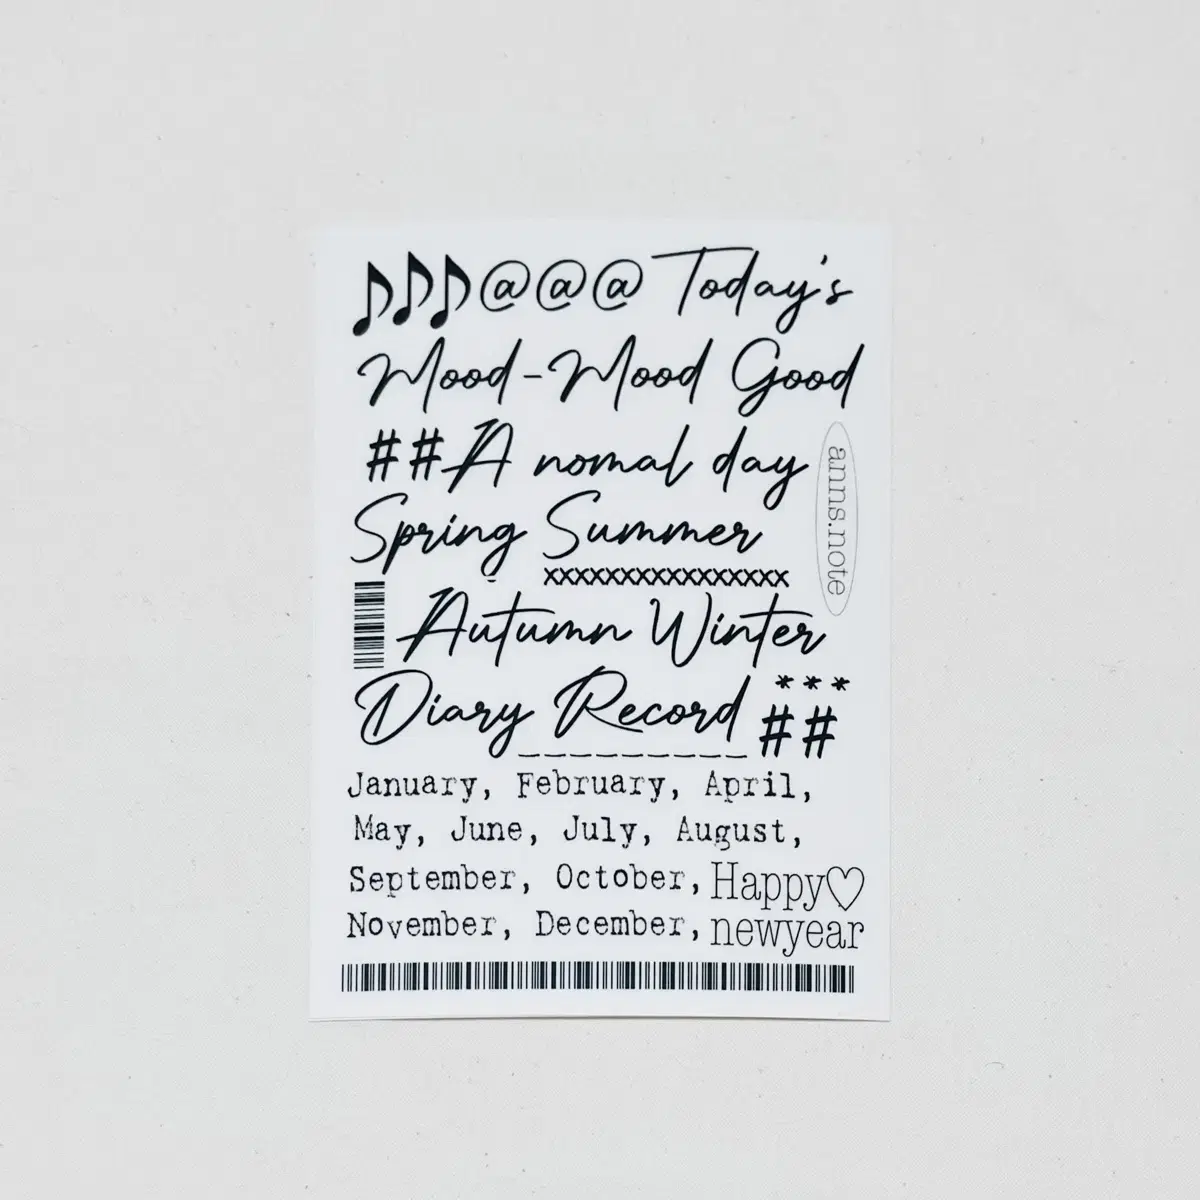 ♪♪♪@@@ Today's
Mood-Mood Good
##A nomal day
anns.note
Spring Summer
xxxxxxxxxxxxxxxx
Autumn Winter
Diary Record ***
_________ ##
January, February, April,
May, June, July, August,
September, October,
November, December,
Happy♡
newyear